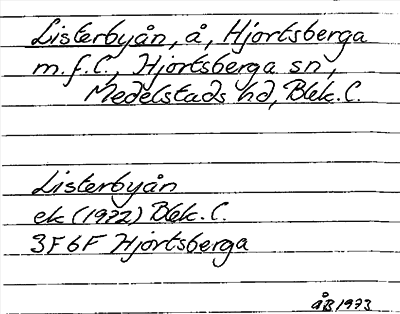 Listerbyån, å, Hjortsberga
m.fl., Hjortsberga sn,
Medelstads hd, Blek.l.
Listerbyån
ek (1972) Blek.l.
3F6F Hjortsberga
åB 1973